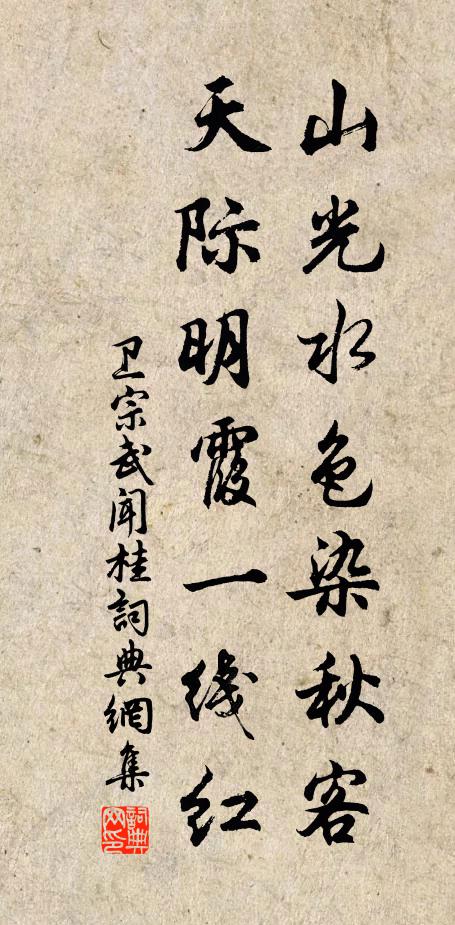 山光水色染秋客
天际明霞一线红
卫宗武闻桂詞典網集
詞典网印